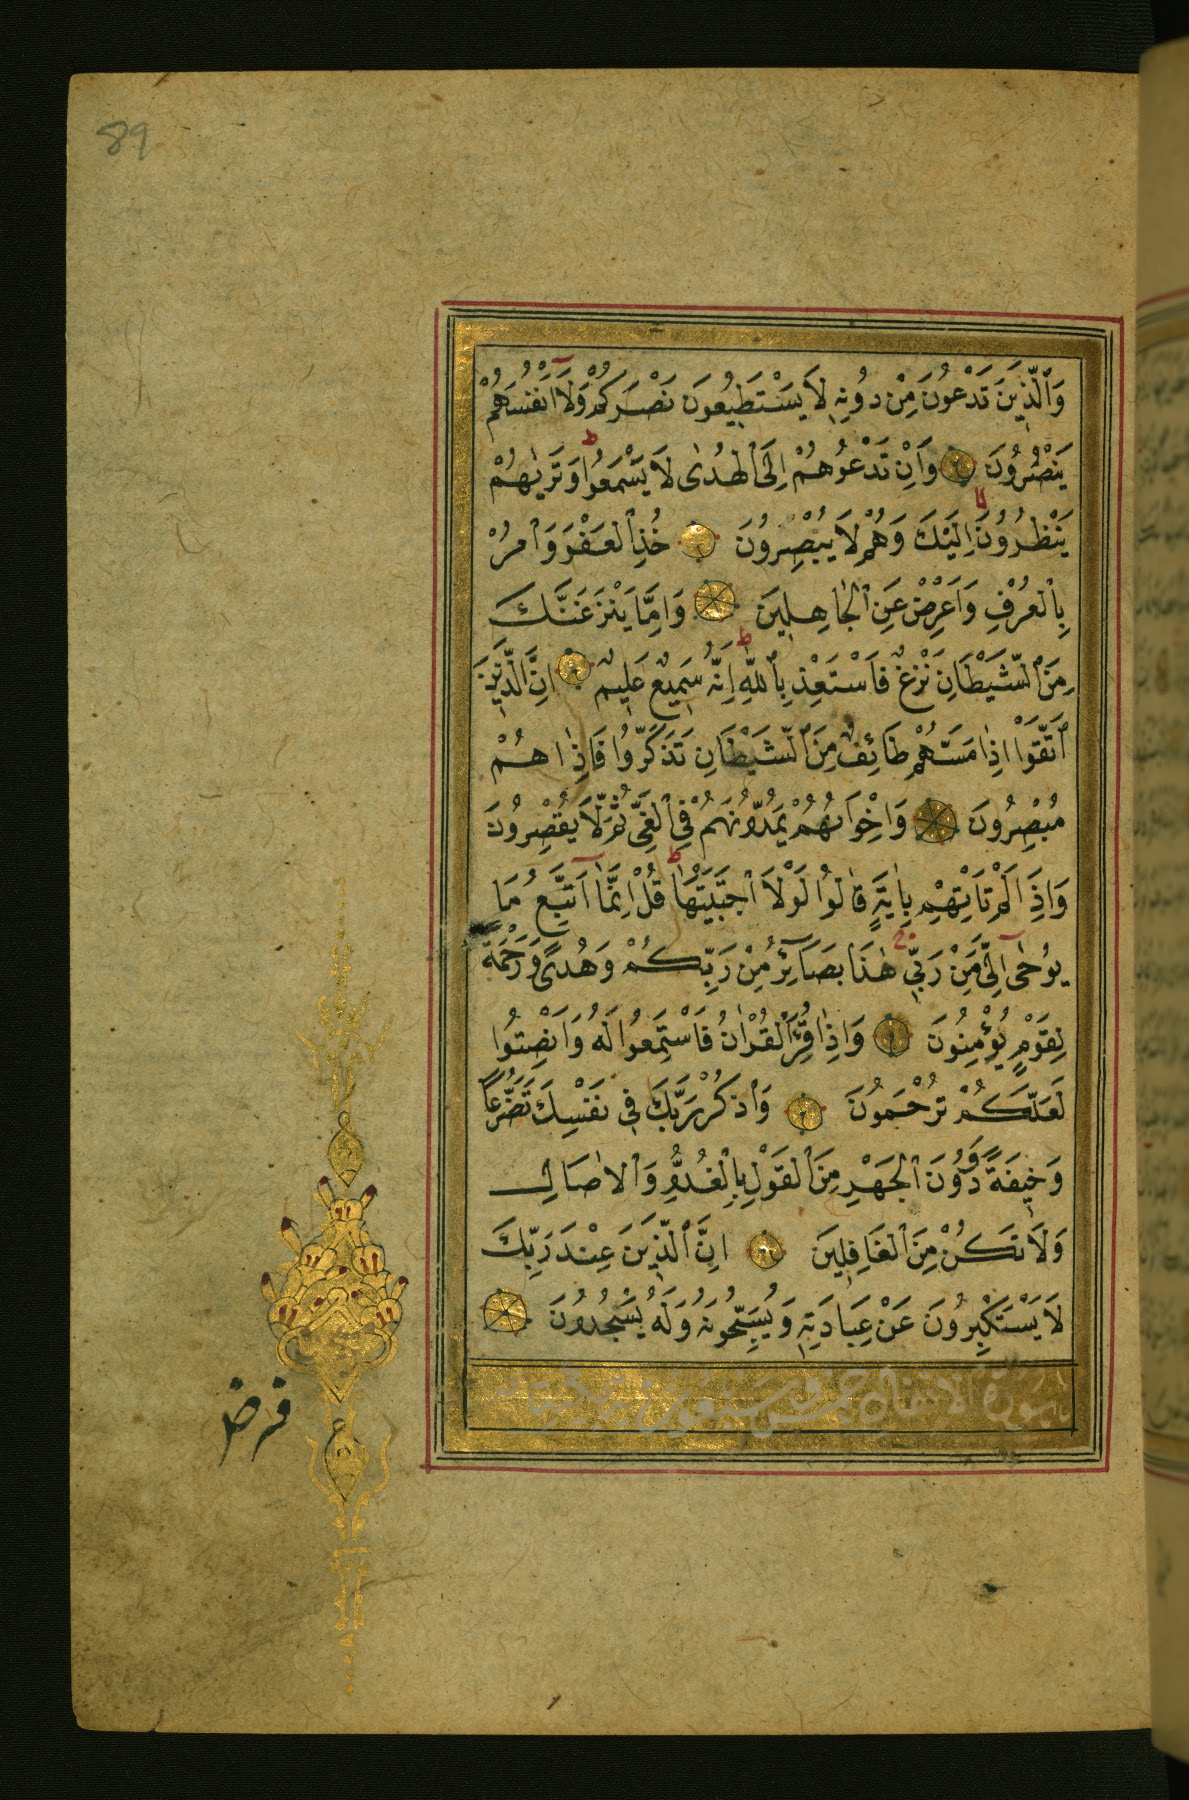 89
وَٱلَّذِينَ تَدْعُونَ مِنْ دُونِهِ لَا يَسْتَطِيعُونَ نَصْرَكُمْ وَلَا أَنْفُسَهُمْ
يَنْصُرُونَ وَاِنْ تَدْعُوهُمْ اِلَى ٱلْهُدٰى لَا يَسْمَعُوا وَتَرٰيهُمْ
يَنْظُرُونَ اِلَيْكَ وَهُمْ لَا يُبْصِرُونَ خُذِ ٱلْعَفْوَ وَأْمُرْ
بِٱلْعُرْفِ وَاَعْرِضْ عَنِ ٱلْجَاهِلِينَ وَاِمَّا يَنْزَغَنَّكَ
مِنَ ٱلشَّيْطَانِ نَزْغٌ فَاسْتَعِذْ بِٱللّٰهِ اِنَّهُ سَمِيعٌ عَلِيمٌ اِنَّ ٱلَّذِينَ
ٱتَّقَوْا اِذَا مَسَّهُمْ طَائِفٌ مِنَ ٱلشَّيْطَانِ تَذَكَّرُوا فَاِذَا هُمْ
مُبْصِرُونَ وَاِخْوَانُهُمْ يَمُدُّونَهُمْ فِي ٱلْغَيِّ ثُمَّ لَا يُقْصِرُونَ
وَاِذَا لَمْ تَأْتِهِمْ بِاٰيَةٍ قَالُوا لَوْلَا ٱجْتَبَيْتَهَا قُلْ اِنَّمَا اَتَّبِعُ مَا
يُوحٰى اِلَيَّ مِنْ رَبِّي هٰذَا بَصَائِرُ مِنْ رَبِّكُمْ وَهُدًى وَرَحْمَةٌ
لِقَوْمٍ يُؤْمِنُونَ وَاِذَا قُرِئَ ٱلْقُرْاٰنُ فَاسْتَمِعُوا لَهُ وَاَنْصِتُوا
لَعَلَّكُمْ تُرْحَمُونَ وَٱذْكُرْ رَبَّكَ فِي نَفْسِكَ تَضَرُّعًا
وَخِيفَةً وَدُونَ ٱلْجَهْرِ مِنَ ٱلْقَوْلِ بِٱلْغُدُوِّ وَٱلْاٰصَالِ
وَلَا تَكُنْ مِنَ ٱلْغَافِلِينَ اِنَّ ٱلَّذِينَ عِنْدَ رَبِّكَ
لَا يَسْتَكْبِرُونَ عَنْ عِبَادَتِهِ وَيُسَبِّحُونَهُ وَلَهُ يَسْجُدُونَ
سورة الانفال خمس وسبعون
فرض